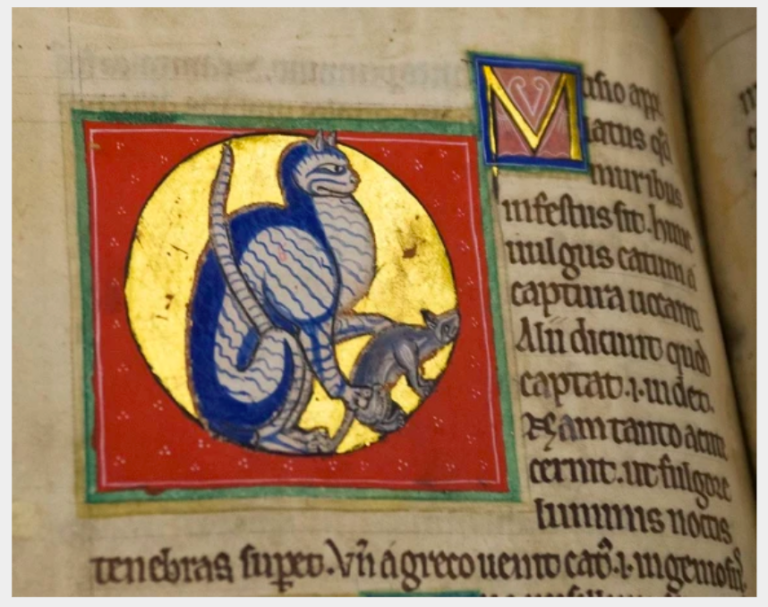 Musio app
latus qd
muribus
infestus sit. hunc
uulgus catum a
captura uocant.
Alii dicunt quod
captat .i. uidet.
Nam tanto acute
cernit. ut fulgore
luminis noctis
tenebras supet. Vn a greco uenit cato .i. ingeniosus.